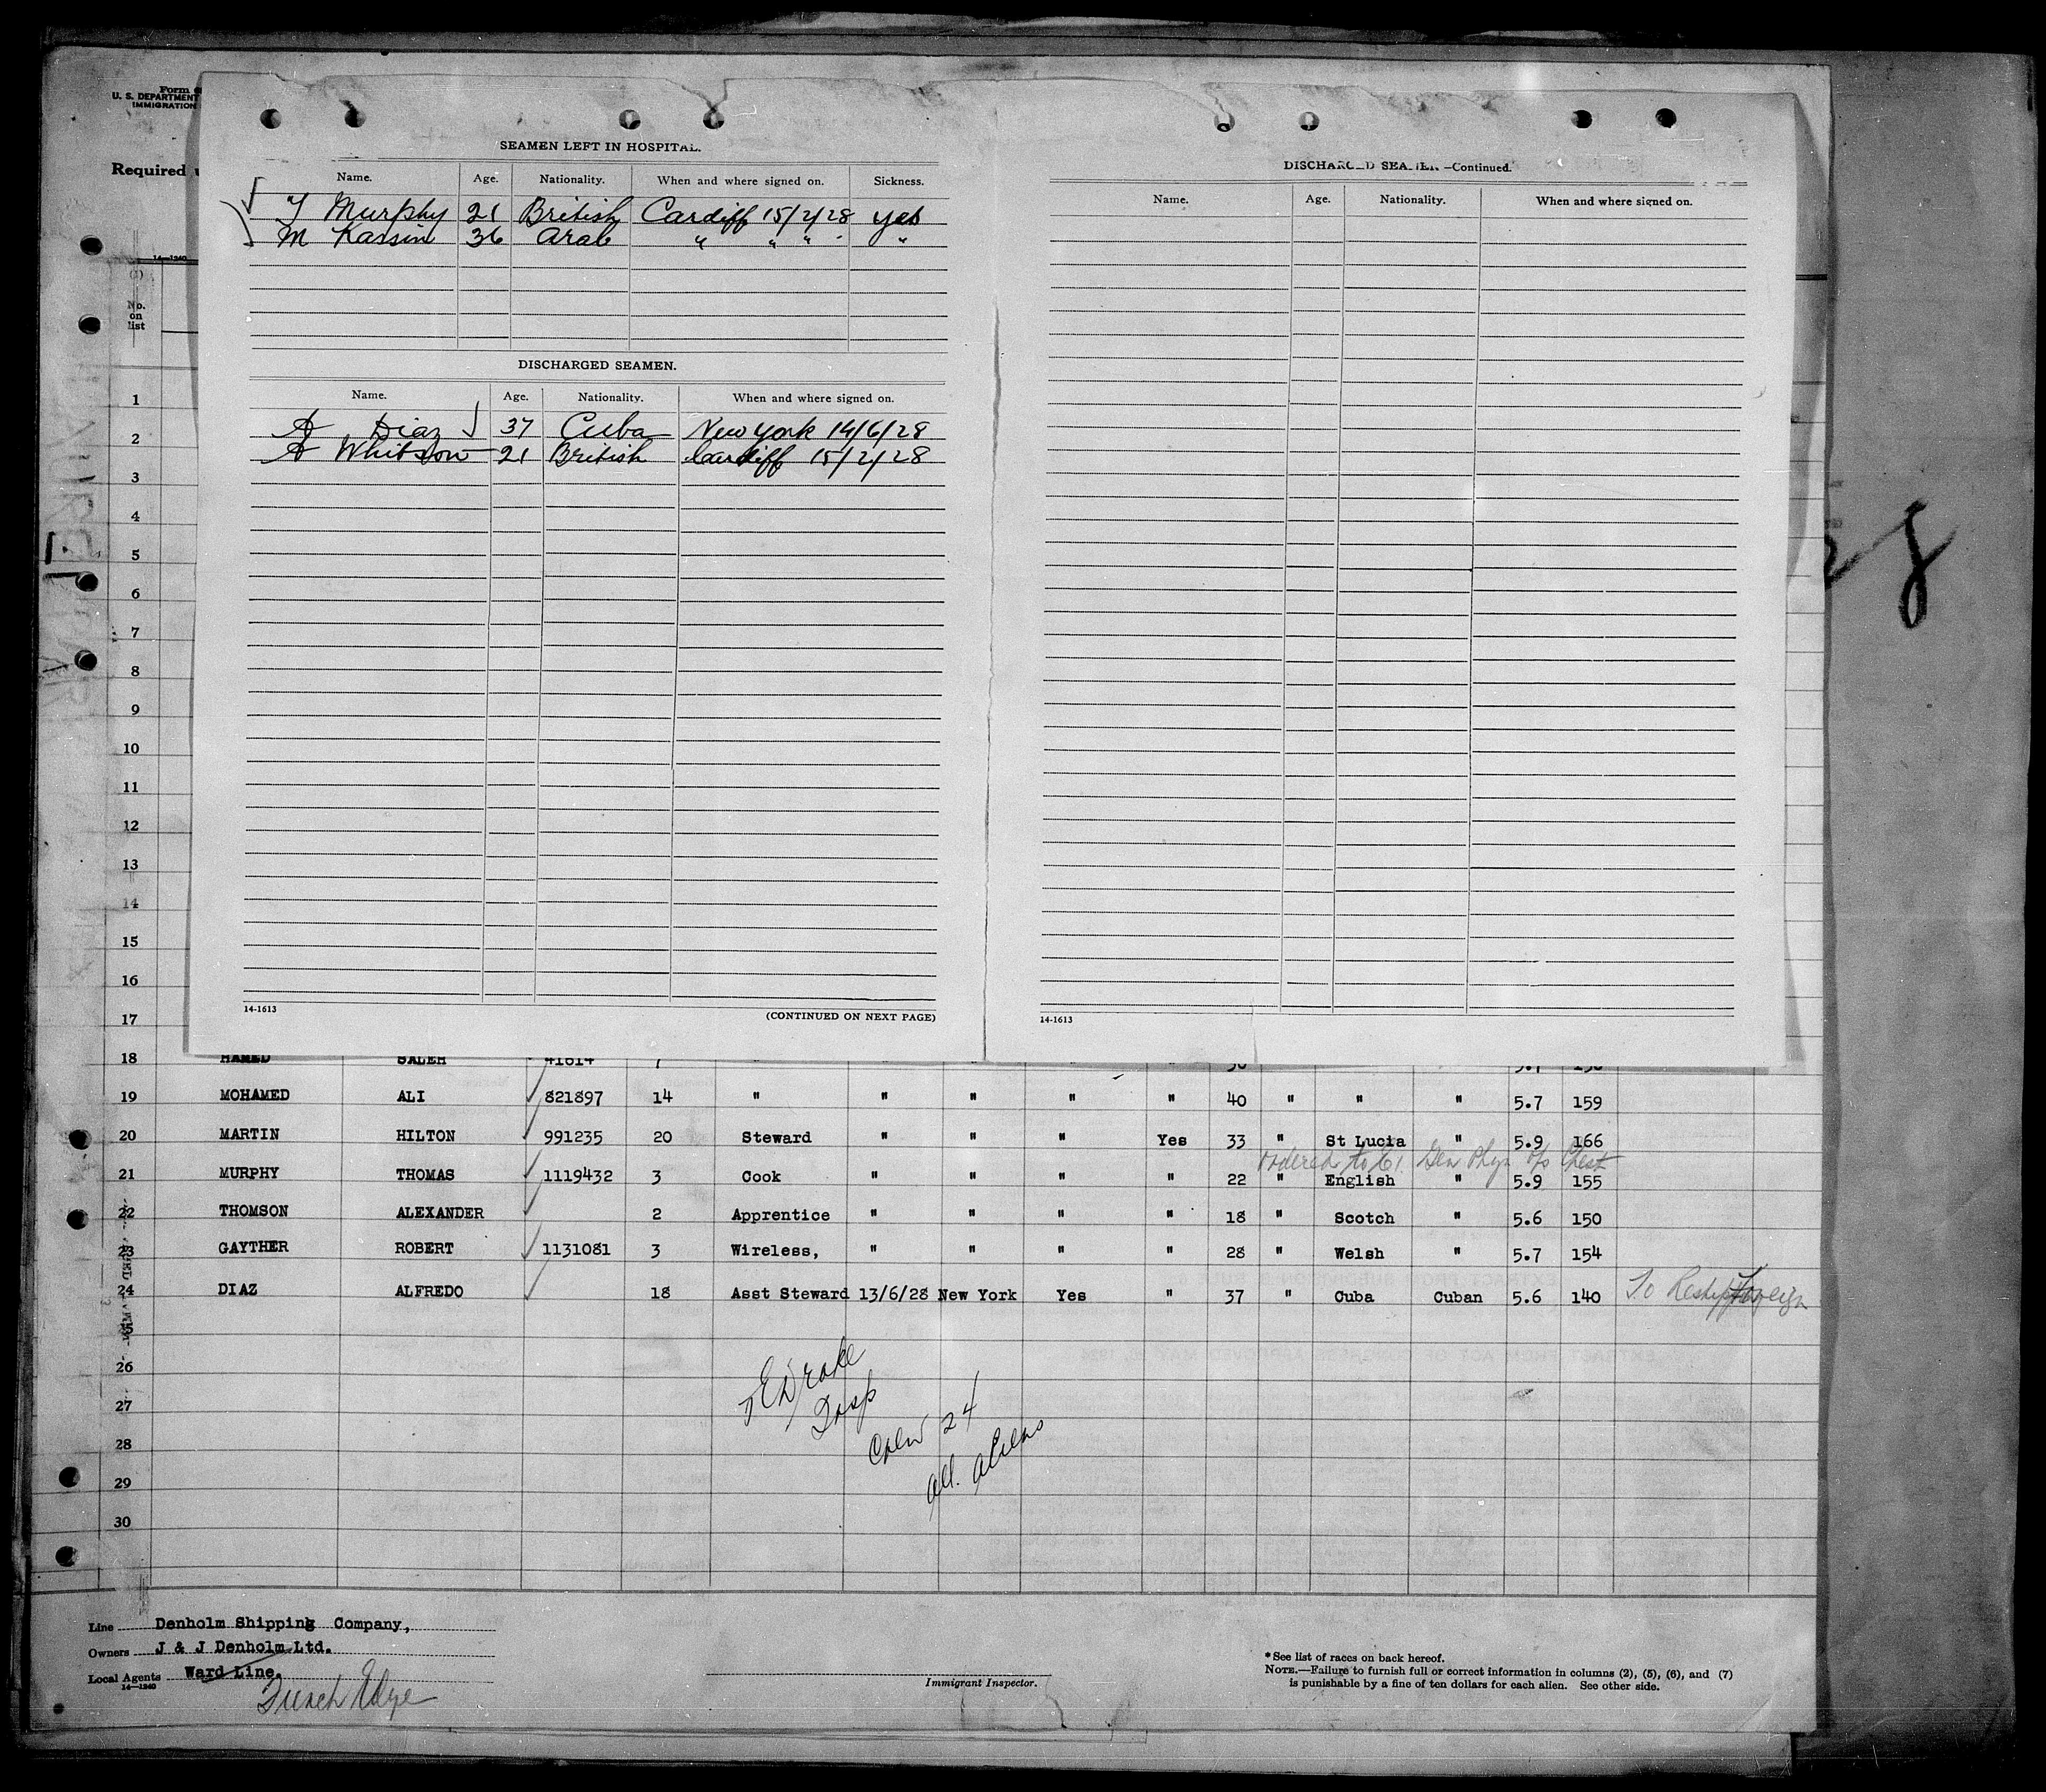 Form
U. S. DEPARTMENT
IMMIGRATION
Required
14—1240
No.
on
list
SEAMEN LEFT IN HOSPITAL.
Name. Age. Nationality. When and where signed on. Sickness.
T Murphy 21 British Cardiff 15/2/28 yes
M Kassim 36 Arab " " " "
DISCHARGED SEAMEN.
Name. Age. Nationality. When and where signed on.
A Diaz 37 Cuba New York 14/6/28
A 21 British Cardiff 15/2/28
14-1613
(CONTINUED ON NEXT PAGE)
DISCHARGED SEAMEN—Continued.
Name. Age. Nationality. When and where signed on.
14-1613
1
2
3
4
5
6
7
8
9
10
11
12
13
14
15
16
17
18 HAMED SALEH 41614 7
19 MOHAMED ALI 821897 14 " " " " " 40 " " " 5.7 159
20 MARTIN HILTON 991235 20 Steward " " " Yes 33 " St Lucia " 5.9 166
Ordered to Chest
21 MURPHY THOMAS 1119432 3 Cook " " " " 22 " English " 5.9 155
22 THOMSON ALEXANDER 2 Apprentice " " " " 18 " Scotch " 5.6 150
23 GAYTHER ROBERT 1131081 3 Wireless, " " " " 28 " Welsh " 5.7 154
24 DIAZ ALFREDO 18 Asst Steward 13/6/28 New York Yes " 37 " Cuba Cuban 5.6 140 To Reship Foreign
25
26
27
28
29
30
Drake
Insp
Crew 24
all aliens
Line Denholm Shipping Company,
Owners J & J Denholm Ltd.
Local Agents Ward Line.
14—1240
Funch Edye
Immigrant Inspector.
* See list of races on back hereof.
NOTE.—Failure to furnish full or correct information in columns (2), (5), (6), and (7)
is punishable by a fine of ten dollars for each alien. See other side.